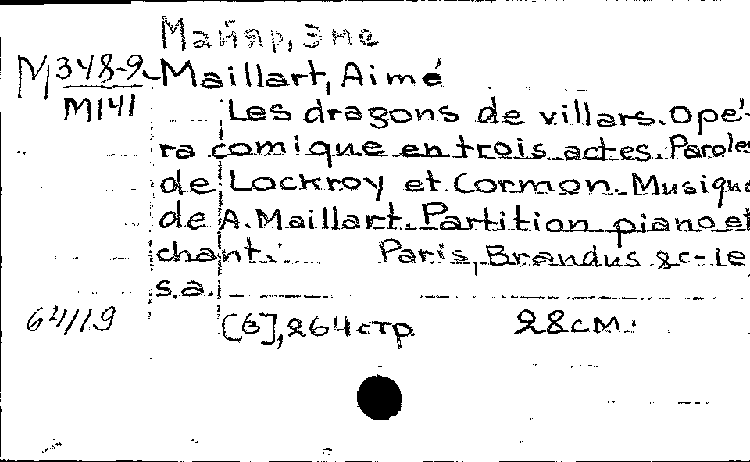 Майяр, Эме
М348-9 Maillart, Aimé
М141 Les dragons de villars. Opé-
ra comique en trois actes. Paroles
de Lockroy et Cormon. Musique
de A. Maillart. Partition piano et
chant. Paris, Brandus &c-ie,
s.a.
64119 [6], 264 стр. 28 см.